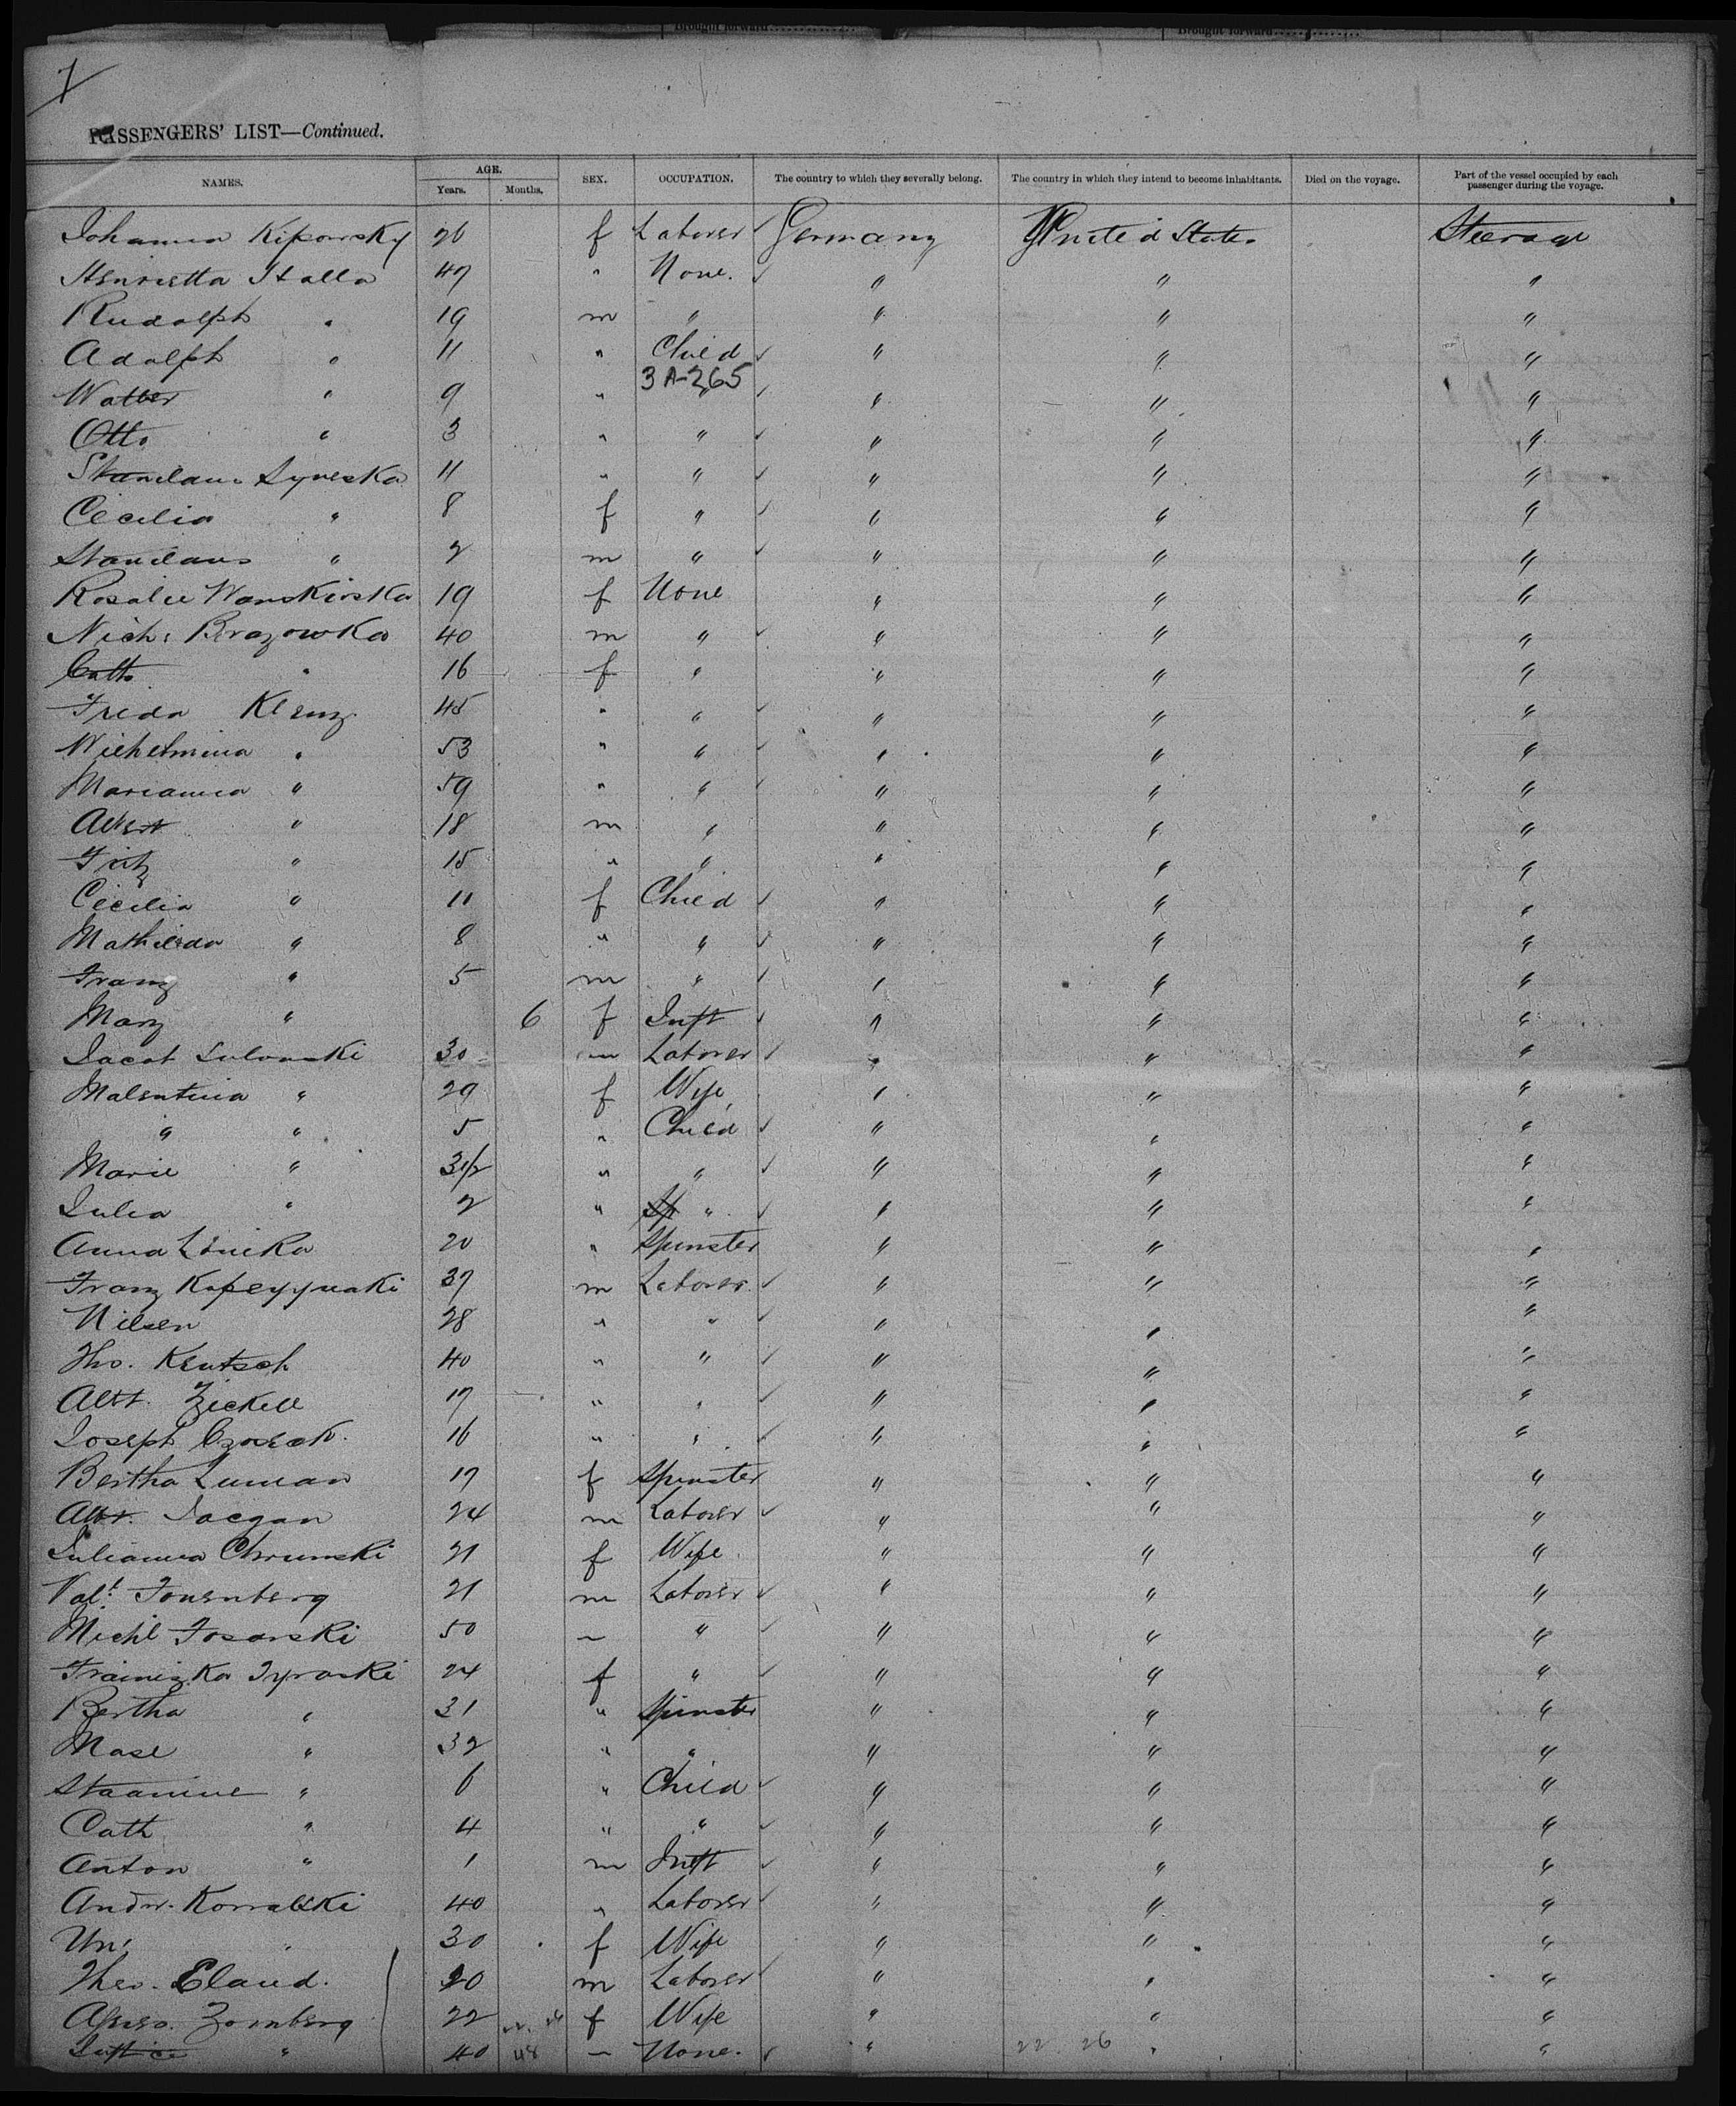 Brought forward.............. Brought forward..............
7
PASSENGERS' LIST—Continued.
NAMES. AGE. Years. Months. SEX. OCCUPATION. The country to which they severally belong. The country in which they intend to become inhabitants. Died on the voyage. Part of the vessel occupied by each passenger during the voyage.
Johanna Kipowsky 26 f Laborer Germany United States Steerage
Henrietta Stalla 47 " None. " " "
Rudolph " 19 m " " " "
Adolph " 11 " Child " " "
3A-265
Walter " 9 " " " " "
Otto " 3 " " " " "
Stanilaus 11 " " " " "
Cecilia " 8 f " " " "
Stanilaus " 2 m " " " "
Rosalie Wanskirska 19 f None " " "
Nich: Brazowka 40 m " " " "
Cath " 16 f " " " "
Freda Klenz 45 " " " " "
Wilhelmina " 53 " " " " "
Marianna " 59 " " " " "
Albert " 18 m " " " "
Fritz " 15 " " " " "
Cecilia " 11 f Child " " "
Mathilda " 8 " " " " "
Franz " 5 m " " " "
Mary " 6 f Inft " " "
Jacob Sulowski 30 m Laborer " " "
Malentina " 29 f Wife " " "
" " 5 " Child " " "
Marie " 3 1/2 " " " " "
Julia " 2 " " " " "
Anna 20 " Spinster " " "
Franz 37 m Laborer " " "
Nilsen 28 " " " " "
Tho. Kentsch 40 " " " " "
Albt. Zickell 17 " " " " "
Joseph 16 " " " " "
Bertha Luman 17 f Spinster " " "
Albt. Jacgan 24 m Laborer " " "
Julianna Chrumski 21 f Wife " " "
Valt. Fonenberg 21 m Laborer " " "
Michl Fosarski 50 — " " " "
Tyraski 24 f " " " "
Bertha " 31 " Spinster " " "
Mase " 32 " " " " "
" 6 " Child " " "
Cath " 4 " " " " "
Anton " 1 m Inft " " "
Andw. Kowalski 40 " Laborer " " "
" 30 f Wife " " "
Theo. Eland. 20 m Laborer " " "
Zomberg 22 f Wife " " "
" 40 48 — None. " 22 26 " "